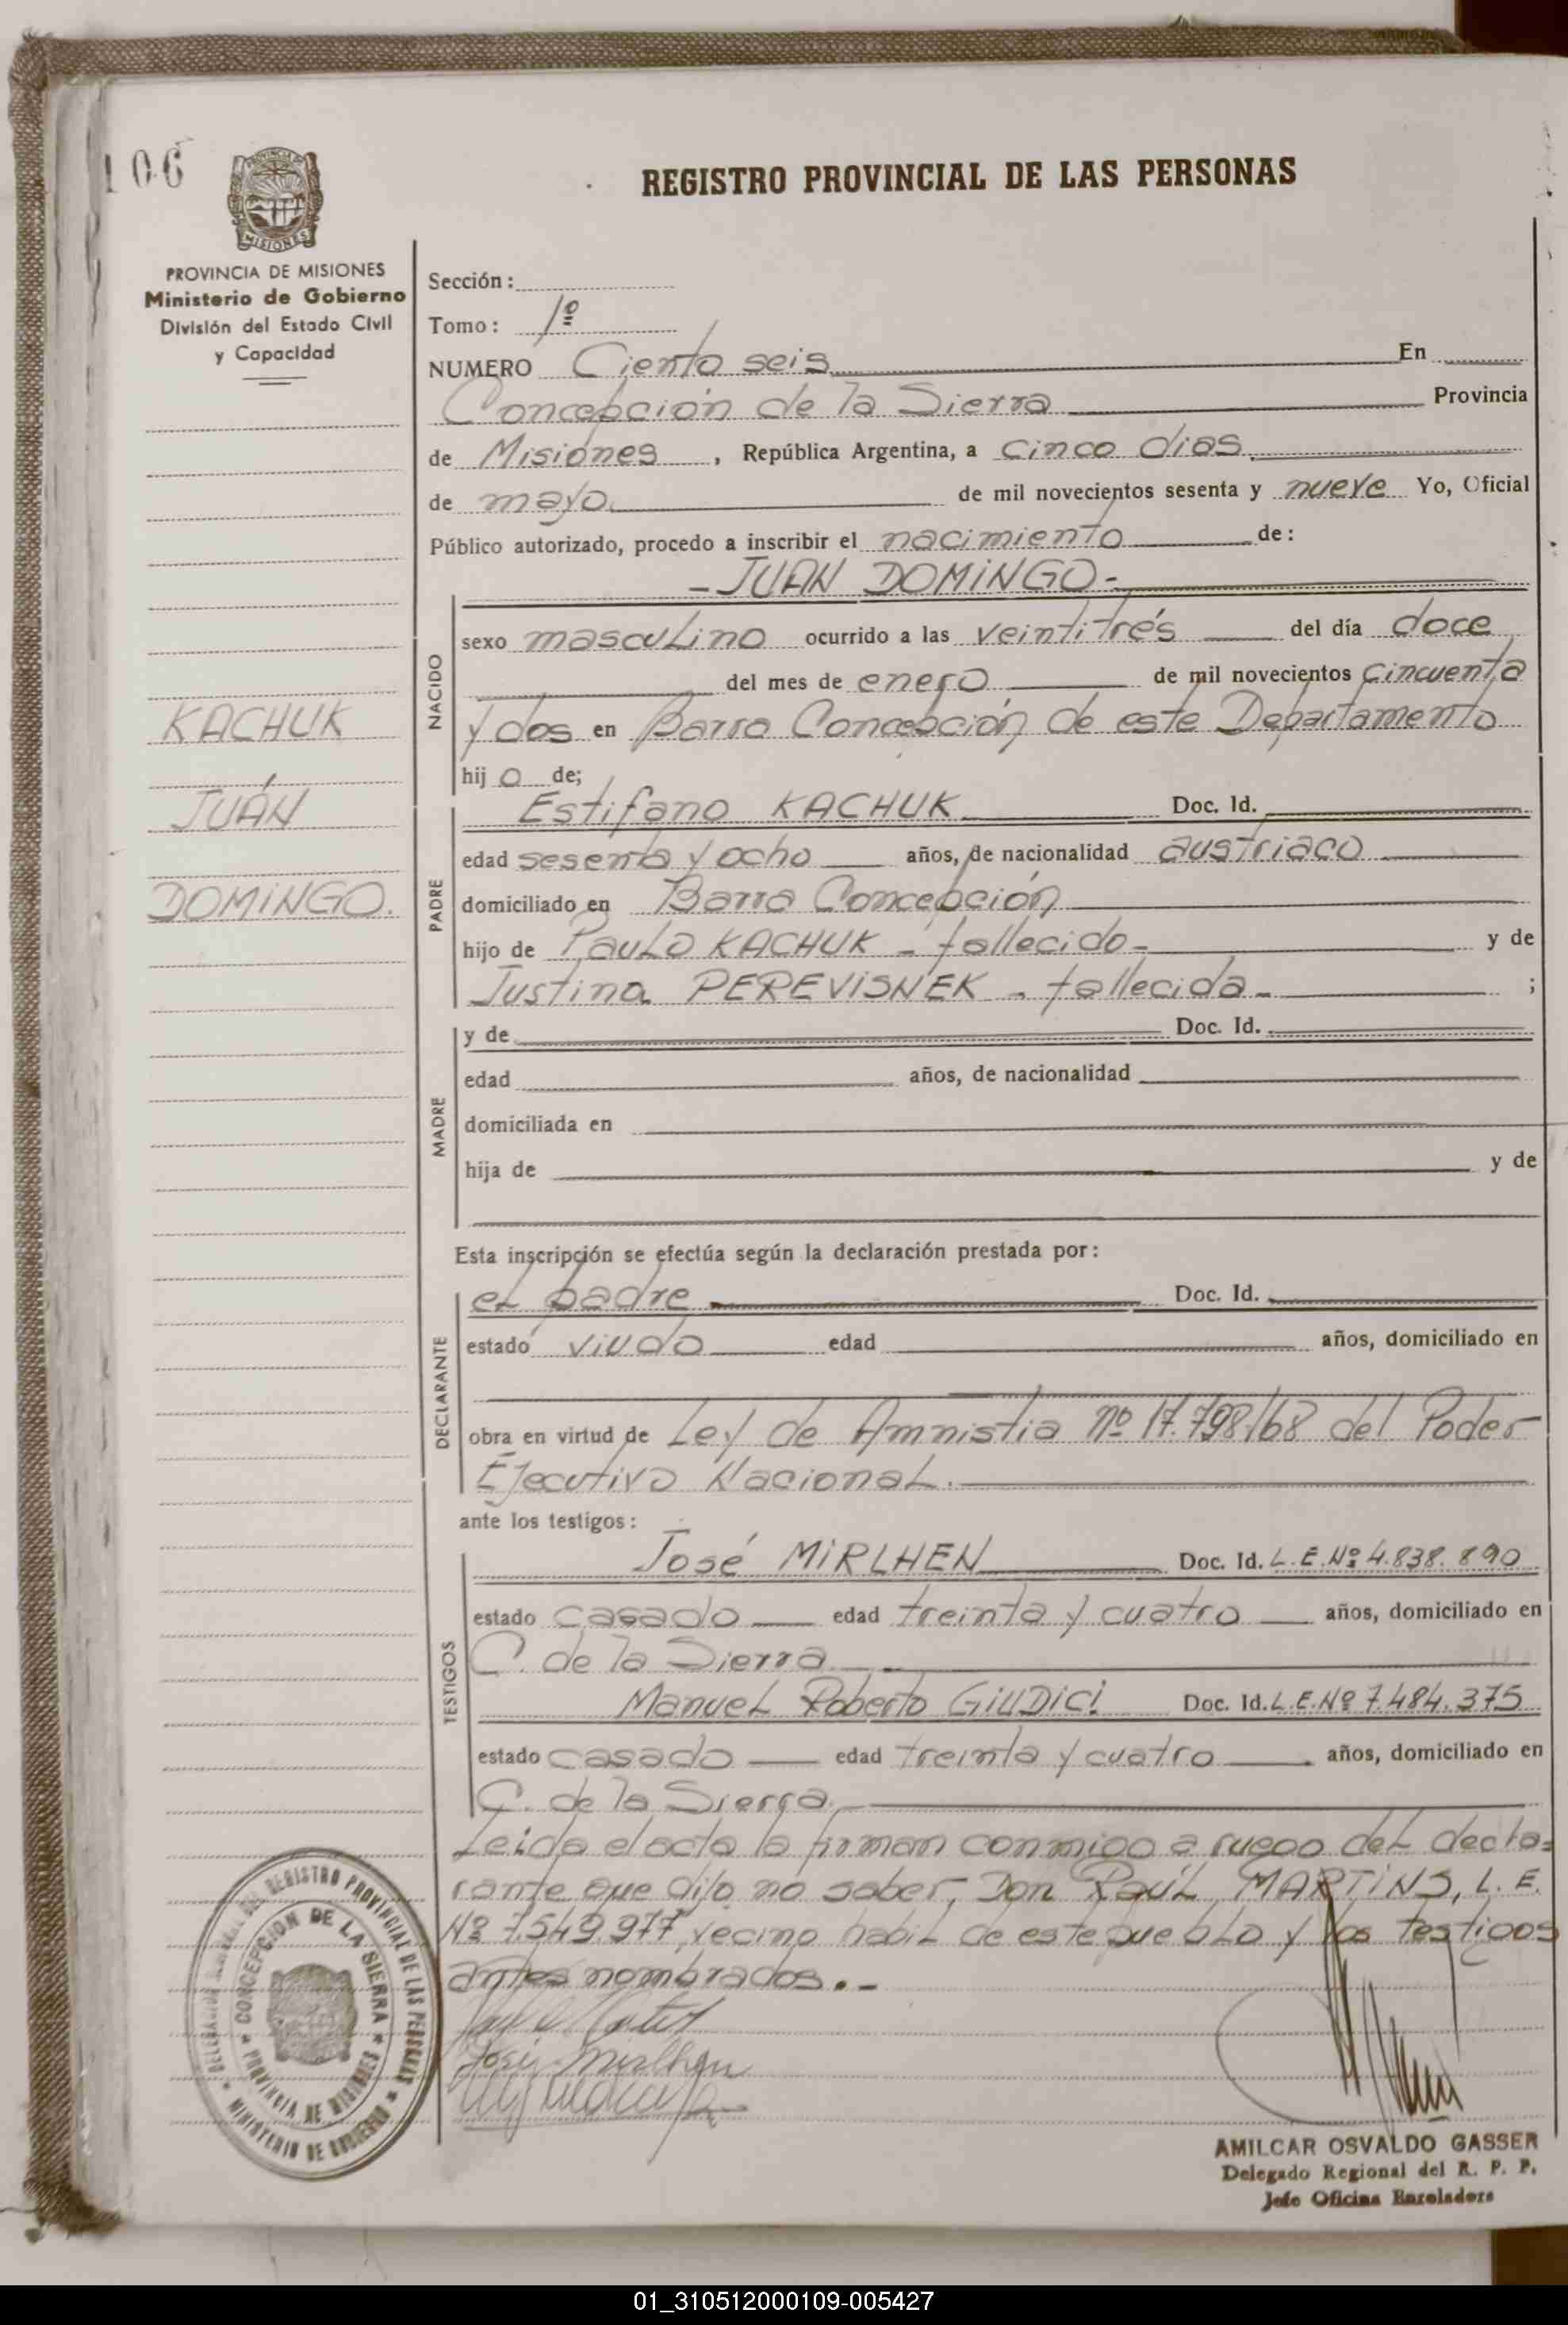 106
MISIONES
PROVINCIA DE MISIONES
Ministerio de Gobierno
División del Estado Civil
y Capacidad
KACHUK
JUÁN
DOMINGO.
REGISTRO PROVINCIAL DE LAS PERSONAS
Sección:
Tomo: 1º
NUMERO Ciento seis En
Concepción de la Sierra Provincia
de Misiones, República Argentina, a cinco dias
de mayo de mil novecientos sesenta y nueve Yo, Oficial
Público autorizado, procedo a inscribir el nacimiento de:
- JUAN DOMINGO -
NACIDO
sexo masculino ocurrido a las veintitrés del día doce
del mes de enero de mil novecientos cincuenta
y dos en Barra Concepción de este Departamento
hijo de;
PADRE
Estifano KACHUK Doc. Id.
edad sesenta y ocho años, de nacionalidad austriaco
domiciliado en Barra Concepción
hijo de Paulo KACHUK - fallecido - y de
Justina PEREVISNEK - fallecida - ;
MADRE
y de Doc. Id.
edad años, de nacionalidad
domiciliada en
hija de y de
Esta inscripción se efectúa según la declaración prestada por:
DECLARANTE
el padre Doc. Id.
estado viudo edad años, domiciliado en
obra en virtud de Ley de Amnistia nº 17.798/68 del Poder
Ejecutivo Nacional.
ante los testigos:
TESTIGOS
José MIRLHEN Doc. Id. L.E.Nº 4.838.890
estado casado edad treinta y cuatro años, domiciliado en
C. de la Sierra
Manuel Roberto GIUDICI Doc. Id. L.E.Nº 7.484.375
estado casado edad treinta y cuatro años, domiciliado en
C. de la Sierra
Leida el acta la firman conmigo a ruego del decla=
rante que dijo no saber, Don Raúl MARTINS, L.E.
Nº 7.549.977, vecino habil de este pueblo y los testigos
antes nombrados.-
José Mirlhen
REGISTRO PROVINCIAL DE LAS PERSONAS
MINISTERIO DE GOBIERNO
CONCEPCION DE LA SIERRA
PROVINCIA DE MISIONES
AMILCAR OSVALDO GASSER
Delegado Regional del R. P. P.
Jefe Oficina Enroladora
01_310512000109-005427